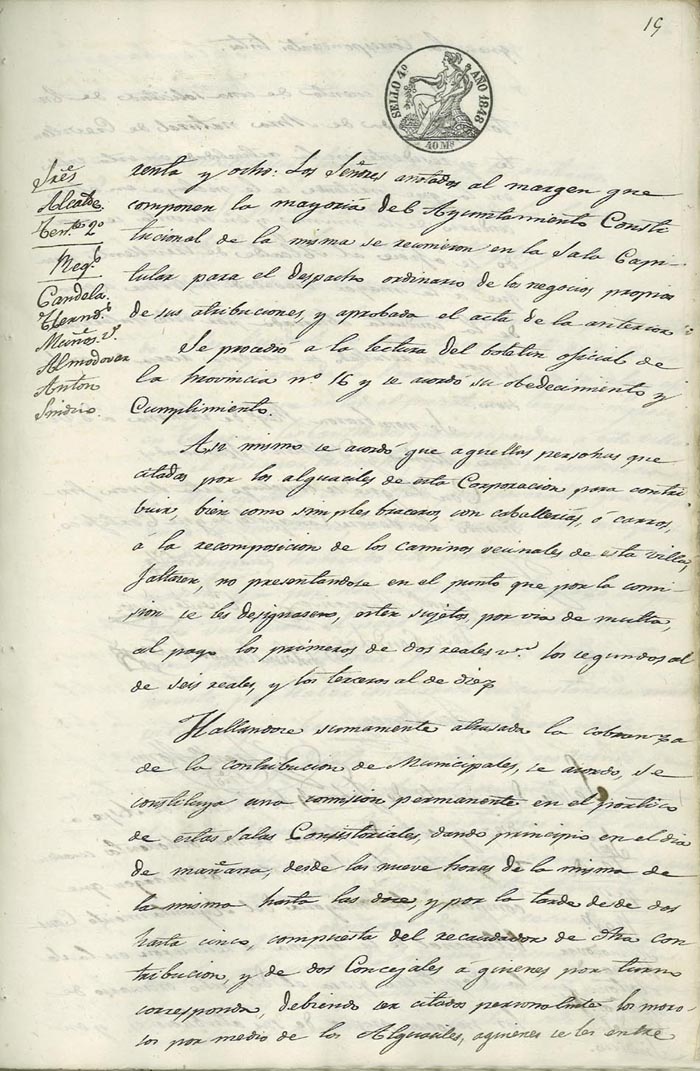 19
SELLO 4º AÑO 1848
40 Ms
Sres
Alcalde
Tente 2º
Candela
Hernz
Muños
Almodovar
Anton
Sindico.
renta y ocho: Los Señores anotados al margen que
componen la mayoria del Ayuntamiento Consti
tucional de la misma se reunieron en la Sala Capi
tular para el despacho ordinario de los negocios propios
de sus atribuciones, y aprobada el acta de la anterior
Se procedió a la lectura del boletin oficial de
la Provincia nº 16 y se acordó su obedecimiento y
Cumplimiento.
Asi mismo se acordó que aquellas personas que
citadas por los alguaciles de esta Corporacion para contri
buir, bien como simples braceros, con caballerias, ó carros,
á la recomposicion de los caminos vecinales de esta villa,
faltaren, no presentandose en el punto que por la comi
sion se les designasen, esten sujetos, por via de multa,
al pago los primeros de dos reales vn los segundos al
de seis reales, y los terceros al de diez
Hallandose sumamente atrasada la cobranza
de la contribucion de Municipales, se acordo, se
constituya una comision permanente en el portico
de estas Salas Consistoriales, dando principio en el dia
de mañana, desde las nueve horas de la misma de
la misma hasta las doce, y por la tarde desde dos
hasta cinco, compuesta del recaudador de dha con
tribucion, y de dos Concejales á quienes por turno
corresponda, debiendo ser citados personalmte los moro
sos por medio de los Alguaciles, a quienes se les entre